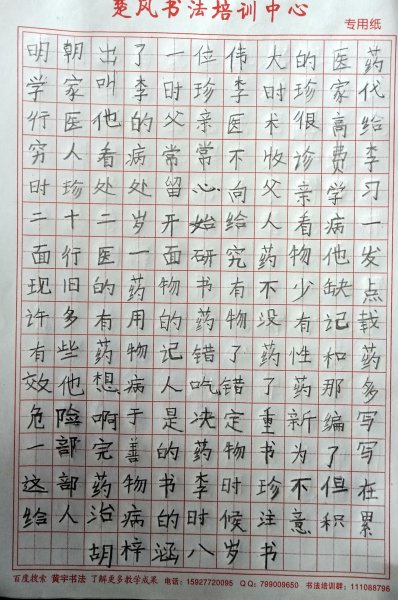 楚风书法培训中心
专用纸
明朝出了一位伟大的医药
学家叫李时珍李时珍家代
行医他的父亲医术很高给
穷人看病常常不收诊费李
时珍处处留心向父亲学习
二十二岁开始给人看病一
面行医一面研究药物他发
现旧的药物书有不少缺点
许多有用的药物没有记载
有些药物记错了药性和药
效他想病人吃错了药那多
危险啊于是决定重新编写
一部完善的药物书为了写
这部药物书李时珍不但在
给人治病的时候注意积累
胡梓涵八岁书
百度搜索 黄宇书法 了解更多教学成果 电话：15927720095 QQ：799009650 书法培训群：111088796